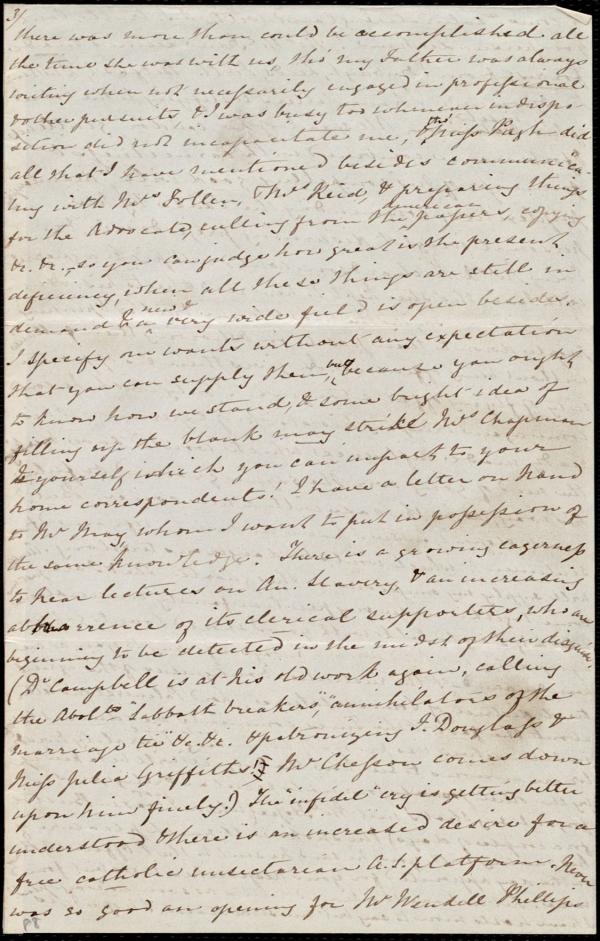 3/
there was more than could be accomplished all
the time she was with us, tho' my Father was always
writing when not necessarily engaged in professional
& other pursuits, & I was busy too whenever indispo-
sition did not incapacitate me, & tho' Miss Pugh did
all that I have mentioned besides communica-
ting with Mrs Follen, Mrs Reid, & preparing things
for the Advocate, culling from the American papers, copying
&c. &c., so you can judge how great is the present
deficiency, when all these things are still in
demand & a new & very wide field is open besides.
I specify our wants without any expectation
that you can supply them, but because you ought
to know how we stand, & some bright idea of
filling up the blank may strike Mrs Chapman
& yourself which you can impart to your
home correspondents! I have a letter on hand
to Mr May, whom I want to put in possession of
the same knowledge. There is a growing eagerness
to hear lectures on Am. Slavery, & an increasing
abhorrence of its clerical supporters, who are
beginning to be detected in the midst of their disguise.
(Dr Campbell is at his old work again, calling
the Abolts "Sabbath breakers," "annihilators of the
marriage tie" &c. &c. & patronizing F. Douglass &
Miss Julia Griffiths!! Mr Chesson comes down
upon him finely.) The "infidel" cry is getting better
understood & there is an increased desire for a
free catholic unsectarian A.S. platform. Never
was so good an opening for Mr Wendell Phillips